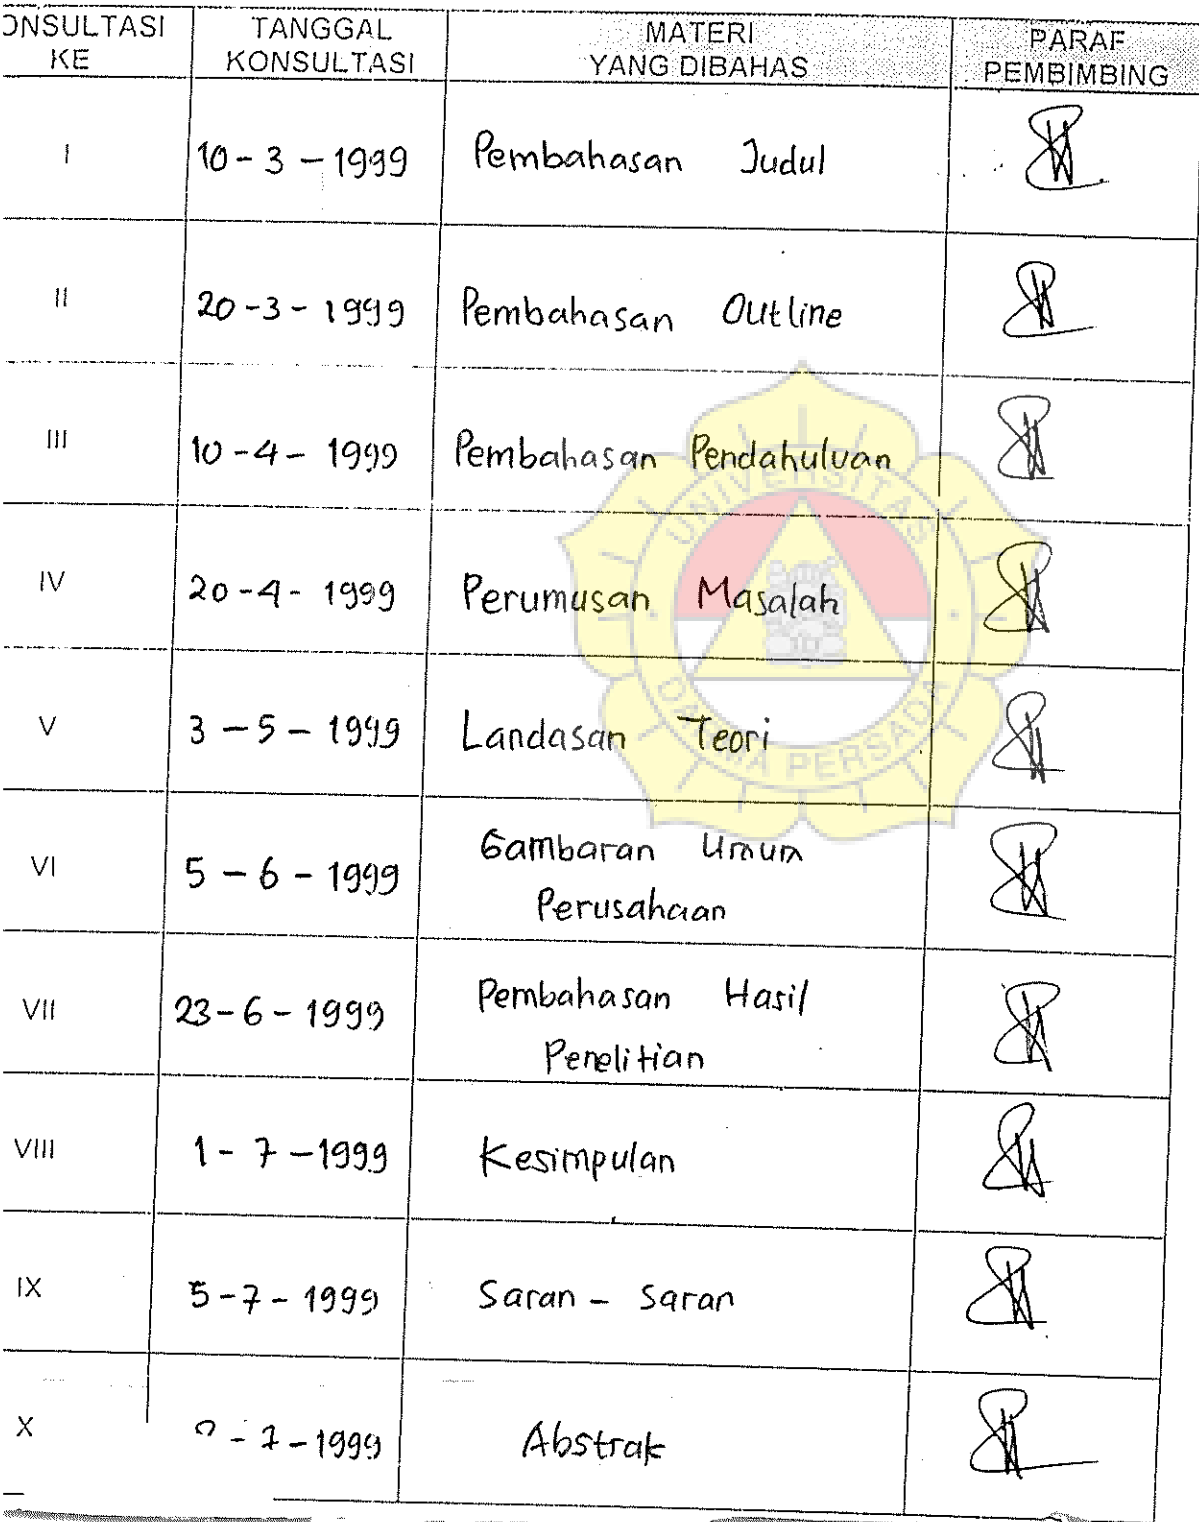 ONSULTASI KE
TANGGAL KONSULTASI
MATERI YANG DIBAHAS
PARAF PEMBIMBING
I 10 - 3 - 1999 Pembahasan Judul
II 20 - 3 - 1999 Pembahasan Outline
III 10 - 4 - 1999 Pembahasan Pendahuluan
IV 20 - 4 - 1999 Perumusan Masalah
V 3 - 5 - 1999 Landasan Teori
VI 5 - 6 - 1999 Gambaran Umum
Perusahaan
VII 23 - 6 - 1999 Pembahasan Hasil
Penelitian
VIII 1 - 7 - 1999 Kesimpulan
IX 5 - 7 - 1999 Saran - Saran
X - 7 - 1999 Abstrak
UNIVERSITAS
DARMA PERSADA